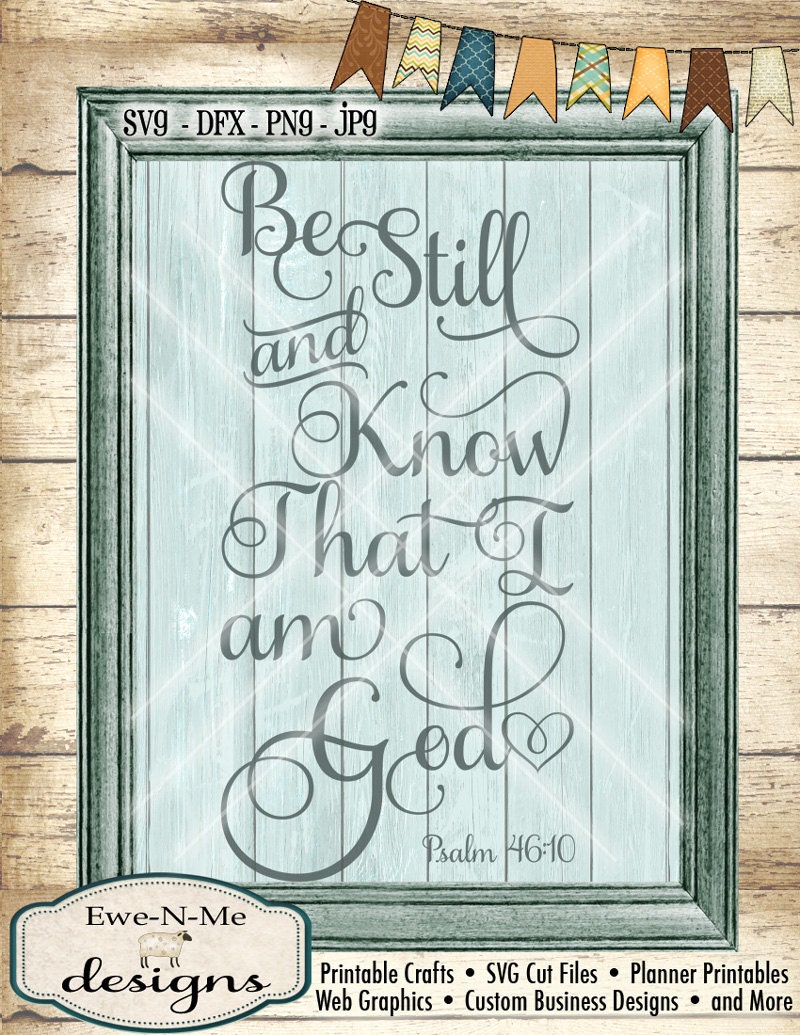 SVG - DFX - PNG - JPG
Be Still
and
Know
That I
am
God
Psalm 46:10
Ewe-N-Me
designs
Printable Crafts • SVG Cut Files • Planner Printables
Web Graphics • Custom Business Designs • and More